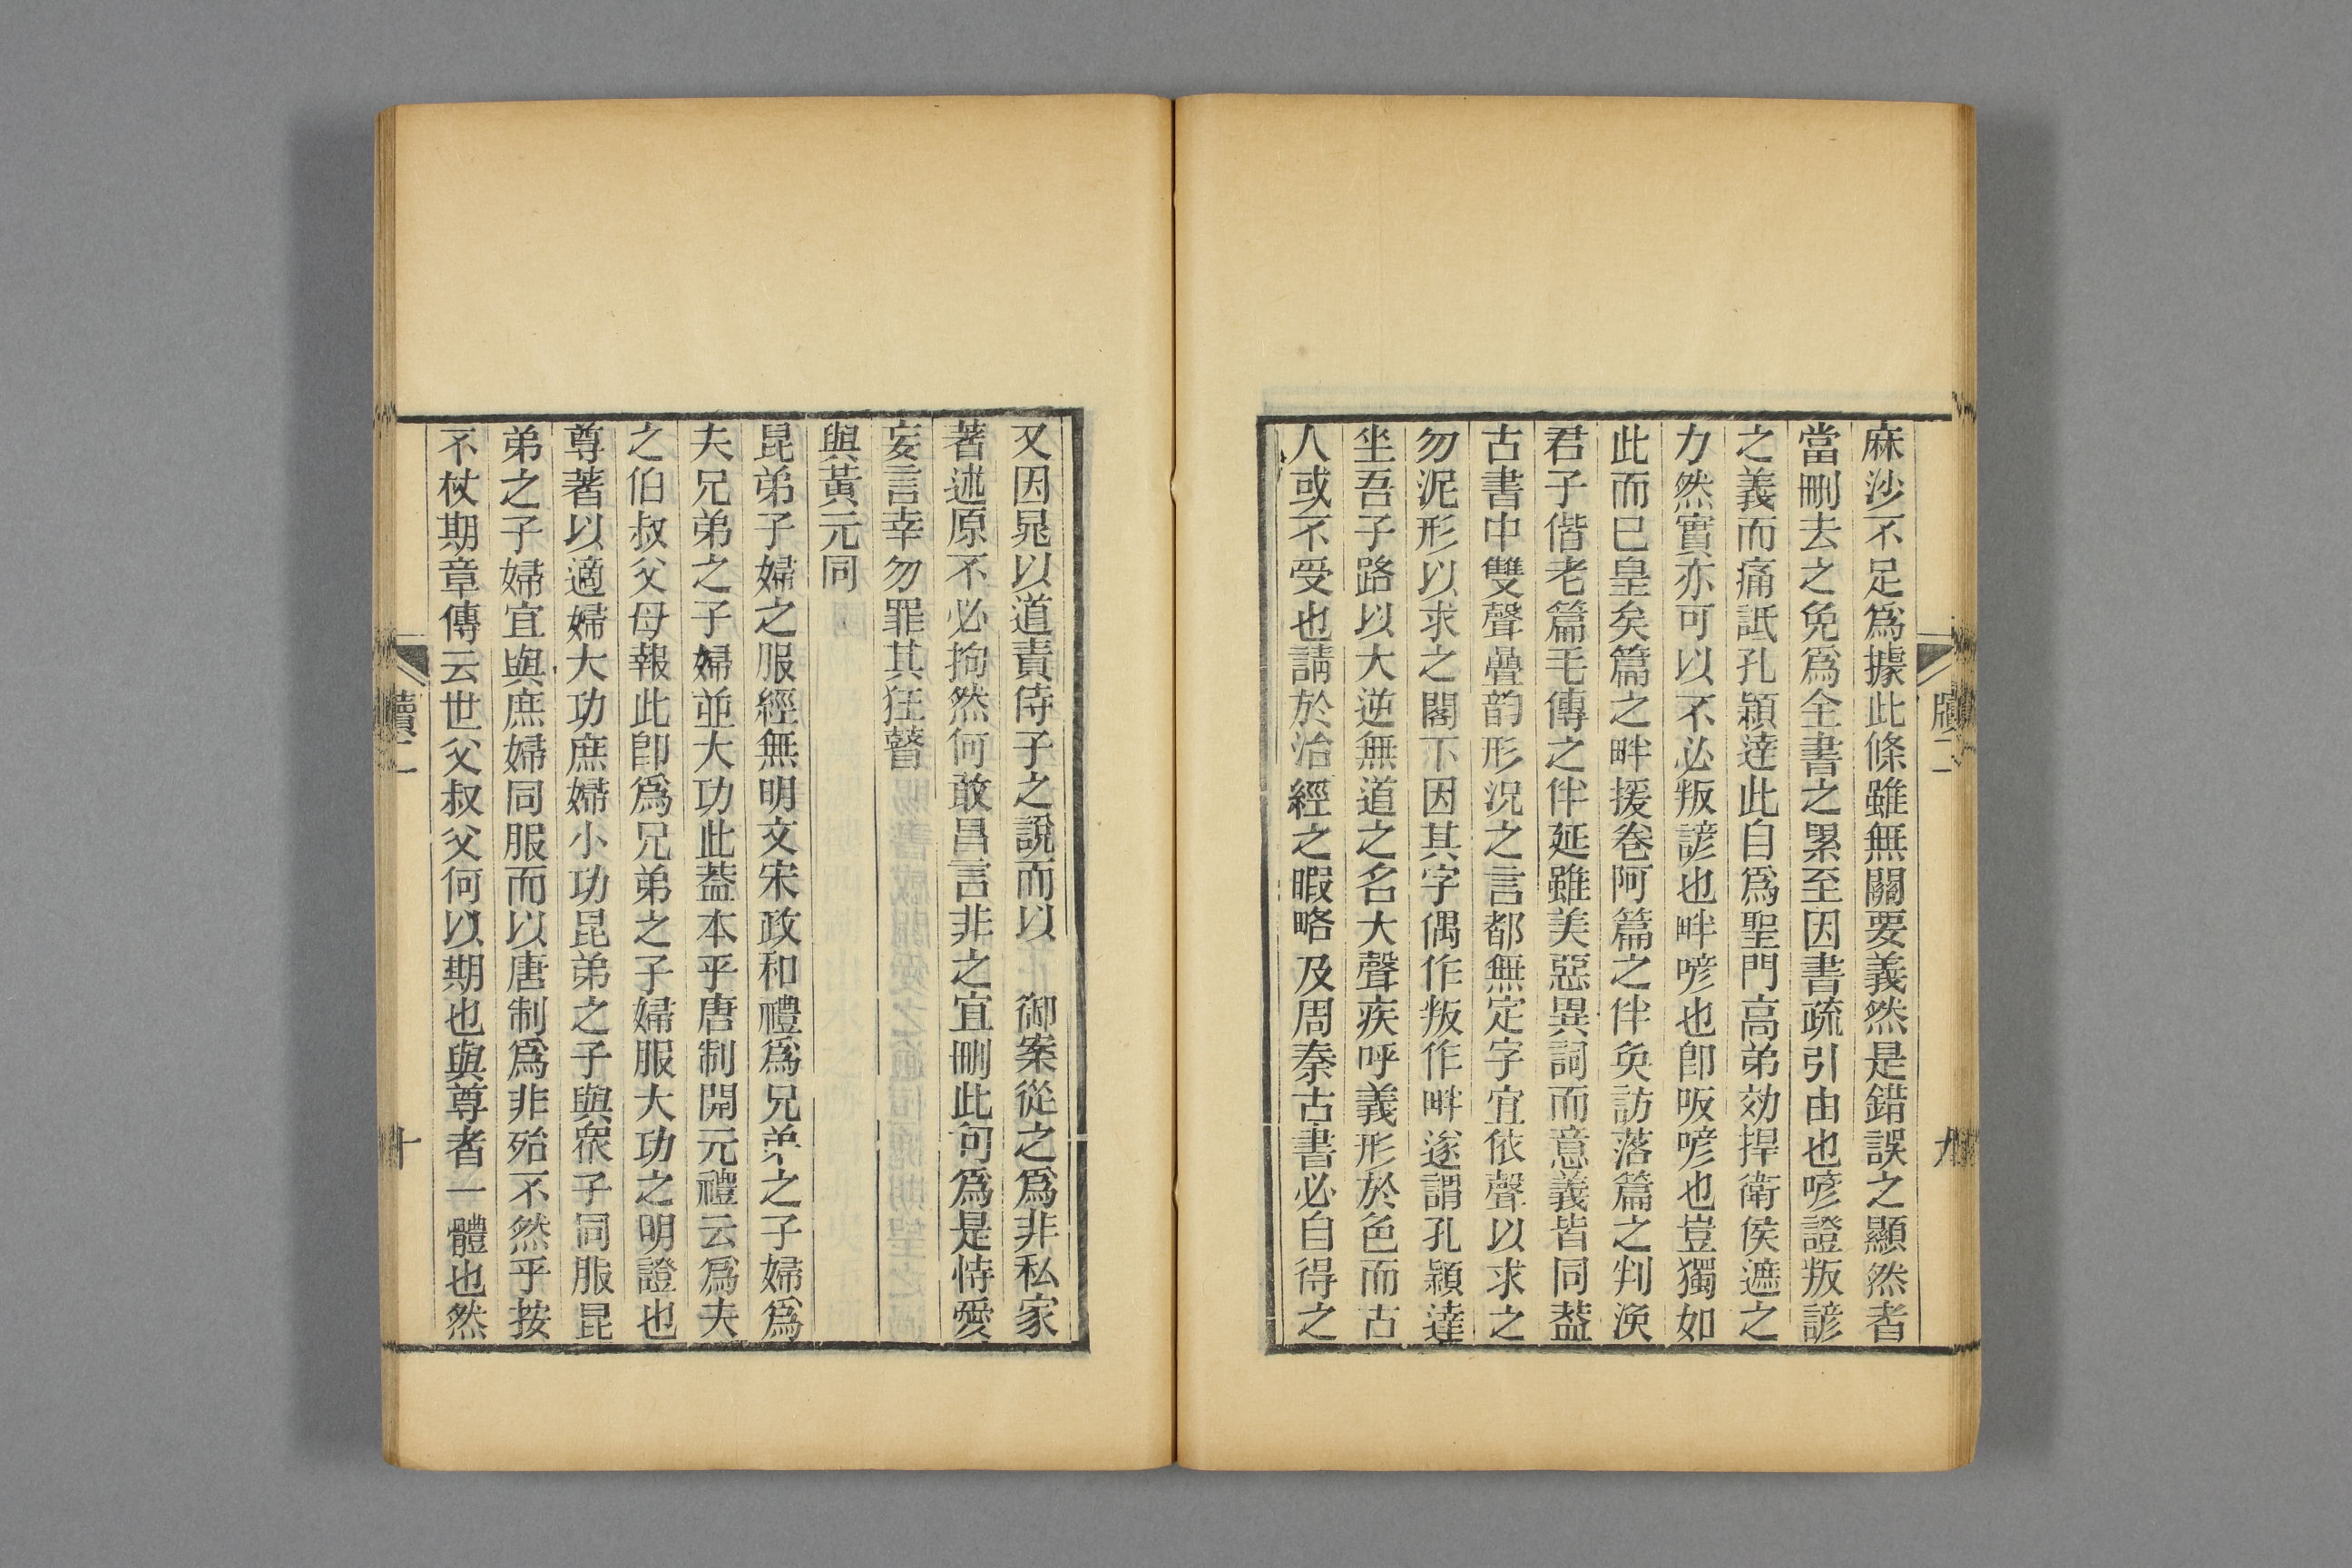 麻沙不足爲據此條雖無關要義然是錯誤之顯然者
當刪去之免爲全書之累至因書疏引由也喭證叛諺
之義而痛詆孔穎達此自爲聖門高弟効捍衛侯遮之
力然實亦可以不必叛諺也畔喭也卽昄喭也豈獨如
此而已皇矣篇之畔援卷阿篇之伴奐訪落篇之判渙
君子偕老篇毛傳之伴延雖美惡異詞而意義皆同葢
古書中雙聲疊韵形況之言都無定字宜依聲以求之
勿泥形以求之閣下因其字偶作叛作畔遂謂孔穎達
坐吾子路以大逆無道之名大聲疾呼義形於色而古
人或不受也請於治經之暇略及周秦古書必自得之
牘二
九
又因晁以道責侍子之說而以 御案從之爲非私家
著述原不必拘然何敢昌言非之宜刪此句爲是恃愛
妄言幸勿罪其狂瞽
與黃元同
昆弟子婦之服經無明文宋政和禮爲兄弟之子婦爲
夫兄弟之子婦並大功此葢本乎唐制開元禮云爲夫
之伯叔父母報此卽爲兄弟之子婦服大功之明證也
尊著以適婦大功庶婦小功昆弟之子與衆子同服昆
弟之子婦宜與庶婦同服而以唐制爲非殆不然乎按
不杖期章傳云世父叔父何以期也與尊者一體也然
牘二
十